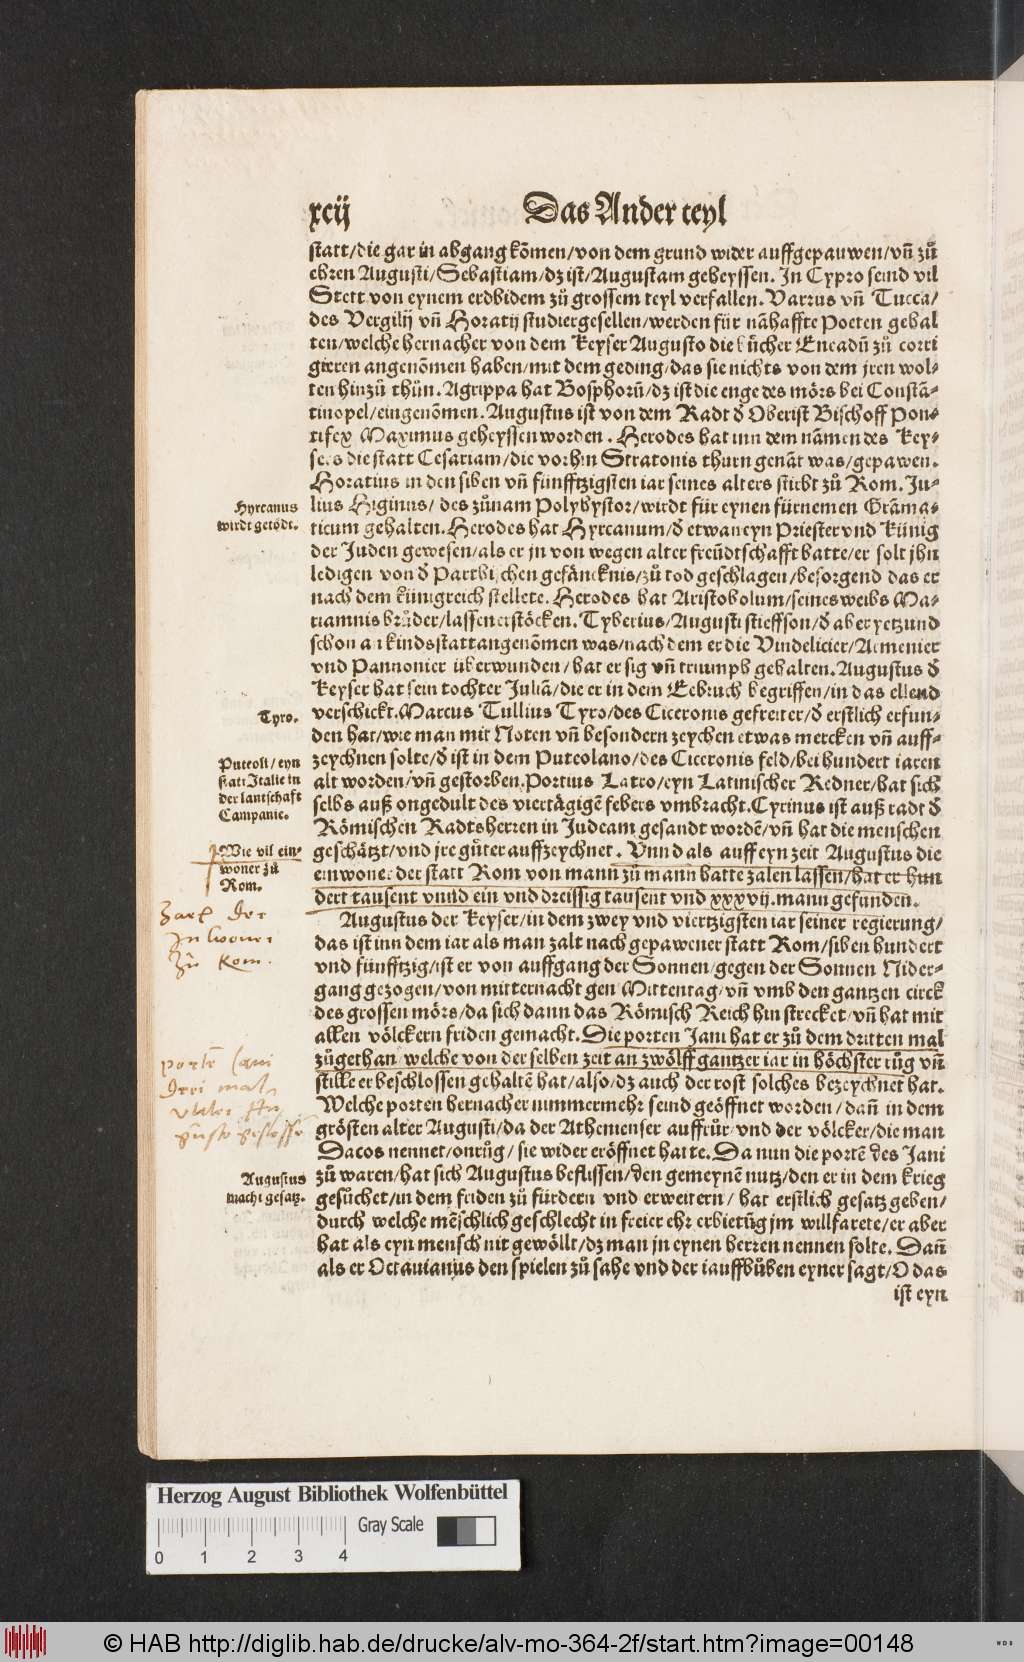 xcij Das Ander teyl
statt/die gar in abgang kõmen/von dem grund wider auffgepauwen/vñ zů
ehren Augusti/Sebastiam/dz ist/Augustam geheyssen. In Cypro seind vil
Stett von eynem erdbidem zů grossem teyl verfallen. Varrus vñ Tucca/
des Vergilij vñ Horatij studiergesellen/werden für nãhaffte Poeten gehal
ten/welche hernacher von dem Keyser Augusto die bücher Eneadũ zů corri
gieren angenõmen haben/mit dem geding/das sie nichts von dem jren wol-
ten hinzů thůn. Agrippa hat Bosphorũ/dz ist die enge des mörs bei Constã-
tinopel/eingenõmen. Augustus ist von dem Radt ď Oberist Bischoff Pon-
tifex Maximus geheyssen worden. Herodes hat inn dem nãmen des Key-
sers die statt Cesariam/die vorhin Stratonis thurn genãt was/gepawen.
Horatius in den siben vñ fünfftzigsten iar seines alters stirbt zů Rom. Ju-
lius Higinus/des zůnam Polyhystor/wirdt für eynen fürnemen Grãma-
ticum gehalten. Herodes hat Hyrcanum/ď etwan eyn Priester vnd Künig
der Juden gewesen/als er jn von wegen alter freüdtschafft hatte/er solt jhn
ledigen von ď Parthischen gefäncknis/zů tod geschlagen/besorgend das er
nach dem künigreich stellete. Herodes hat Aristobolum/seines weibs Ma-
riamnis brůder/lassen erstöcken. Tyberius/Augusti stieffson/ď aber yetzund
schon an kindsstatt angenõmen was/nach dem er die Vindelicier/Armenier
vnd Pannonier überwunden/hat er sig vñ triumph gehalten. Augustus ď
Keyser hat sein tochter Juliã/die er in dem Eebruch begriffen/in das ellend
verschickt. Marcus Tullius Tyro/des Ciceronis gefreiter/ď erstlich erfun-
den hat/wie man mit Noten vñ besondern zeychen etwas mercken vñ auff-
zeychnen solte/ď ist in dem Puteolano/des Ciceronis feld/bei hundert iaren
alt worden/vñ gestorben. Portius Latro/eyn Latinischer Redner/hat sich
selbs auß ongedult des viertägigẽ febers vmbracht. Cyrinus ist auß radt ď
Römischen Radtsherren in Judeam gesandt wordẽ/vñ hat die menschen
geschätzt/vnd jre gůter auffzeychnet. Vnnd als auff eyn zeit Augustus die
einwoner der statt Rom von mann zů mann hatte zalen lassen/hat er hun
dert tausent vnnd ein vnd dreissig tausent vnd xxxvij. mann gefunden.
Augustus der Keyser/in dem zwey vnd viertzigsten iar seiner regierung/
das ist inn dem iar als man zalt nach gepawener statt Rom/siben hundert
vnd fünfftzig/ist er von auffgang der Sonnen/gegen der Sonnen Nider-
gang gezogen/von mitternacht gen Mittentag/vñ vmb den gantzen circk
des grossen mörs/da sich dann das Römisch Reich hin strecket/vñ hat mit
allen völckern friden gemacht. Die porten Jani hat er zů dem dritten mal
zůgethan/welche von der selben zeit an zwölff gantzer iar in höchster růg vñ
stille er beschlossen gehaltẽ hat/also/dz auch der rost solches bezeychnet hat.
Welche porten hernacher nimmermehr seind geöffnet worden/dañ in dem
grösten alter Augusti/da der Athenienser auffrůr/vnd der völcker/die man
Dacos nennet/onrůg/sie wider eröffnet hatte. Da nun die portẽ des Jani
zů waren/hat sich Augustus beflissen/den gemeynẽ nutz/den er in dem krieg
gesůchet/in dem friden zů fürdern vnd erweitern/hat erstlich gesatz geben/
durch welche mẽschlich geschlecht in freier ehr erbietũg jm willfarete/er aber
hat als eyn mensch nit gewöllt/dz man jn eynen herren nennen solte. Dañ
als er Octauianus den spielen zů sahe vnd der iauffbůben eyner sagt/O das
ist eyn
Hyrcanus
wirdt getödt.
Tyro.
Puteoli/eyn
statt Italie in
der lantschaft
Campanie.
Wie vil ein-
woner zů
Rom.
Zarl der
Inwoner
zů Rom.
porte Jani
drei mal
Augustus
macht gesatz.
Herzog August Bibliothek Wolfenbüttel
Gray Scale
0 1 2 3 4
© HAB http://diglib.hab.de/drucke/alv-mo-364-2f/start.htm?image=00148